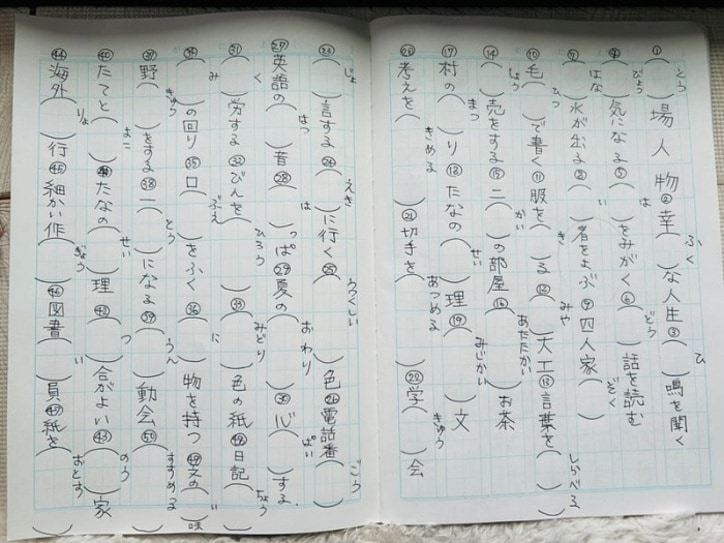 とう ふく ひ
①( )場人物②幸( )な人生③( )鳴を聞く
びょう は どう
④( )気になる⑤( )をみがく⑥( )話を読む
はな い ぞく
⑦( )水が出る⑧( )者をよぶ⑨四人家( )
ひつ き みや しらべる
⑩毛( )で書く⑪服を( )る⑫( )大工⑬言葉を( )
しょう かい あたたかい
⑭( )売をする⑮二( )の部屋⑯( )お茶
まつ せい みじかい
⑰村の( )り⑱たなの( )理⑲( )文
きめる あつめる きゅう
考えを( )㉑切手を( )学( )会
じょ えき うつくしい ごう
㉓( )言する㉔( )に行く㉕( )色㉖電話番( )
はつ は おわり ぱい
㉗英語の( )音㉘( )っぱ㉙夏の( )㉚心( )する
く ひろう みどり ちょう
㉛( )労する㉜びんを( )㉝( )色の紙日記( )
み ぶえ に い
㉞( )の回り㉟口( )をふく㊱( )物を持つ㊾文の( )味
きゅう とう うん すすめる
㊲野( )をする㊳一( )になる㊴( )動会㊿( )
よこ せい つ のう
㊵たてと( )㊶たなの( )理㊷( )合がよい㊸( )家
りょ ぎょう い おとす
㊹海外( )行㊺細かい作( )㊻図書( )員㊼紙を( )